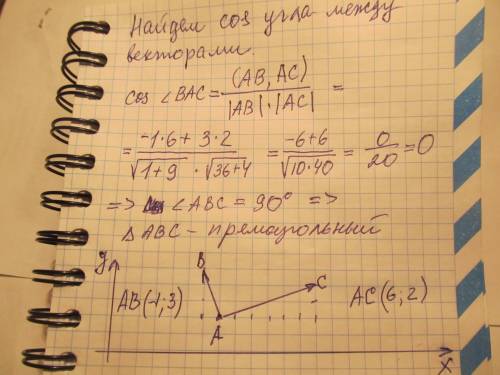 Найдем cos угла между
векторами.
cos ∠BAC = (AB, AC) / |AB|·|AC| =
= -1·6 + 3·2 / √1+9 · √36+4 = -6+6 / √10·40 = 0/20 = 0
=> ∠ABC = 90° =>
△ABC - премоугольный
y B C
AB(-1; 3) AC(6; 2)
A
x